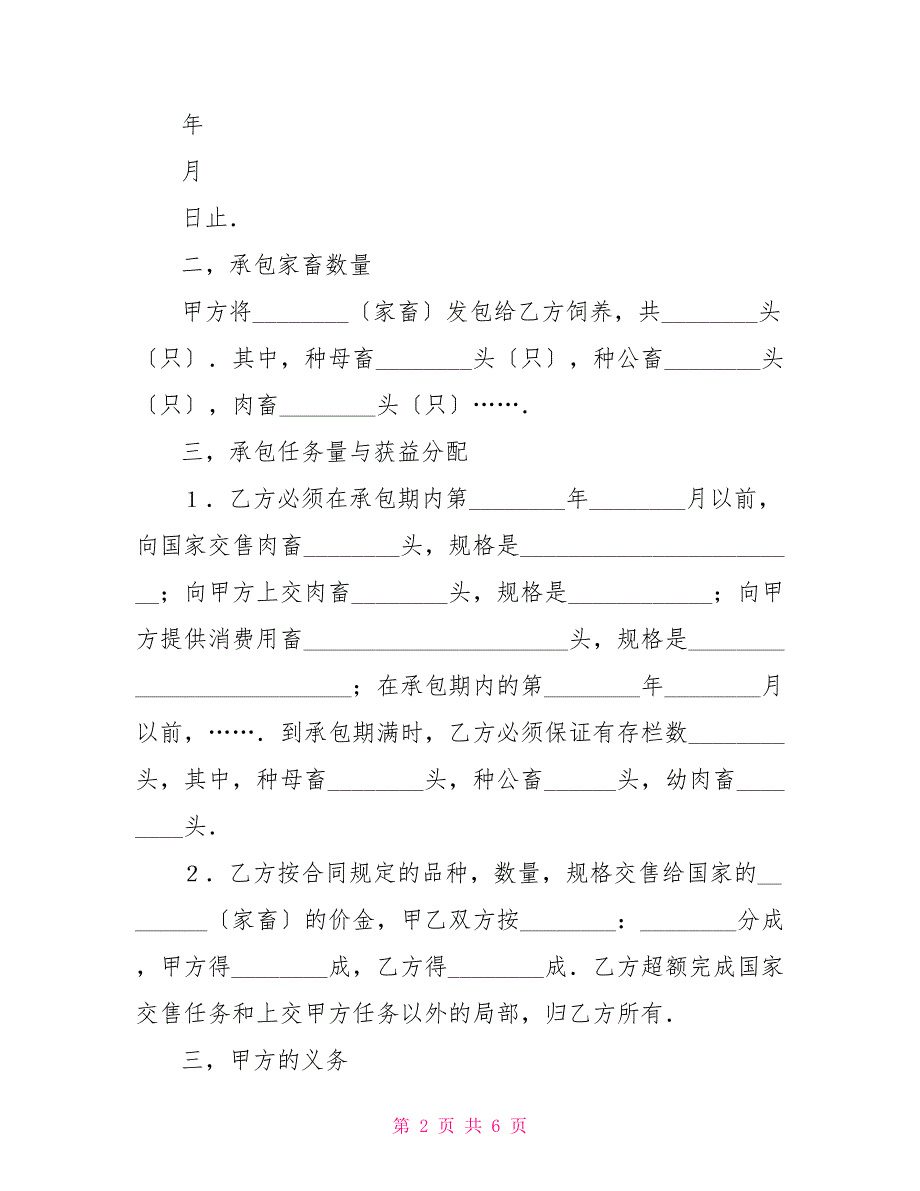 年
月
日止．
二，承包家畜数量
甲方将________〔家畜〕发包给乙方饲养，共________头
〔只〕．其中，种母畜________头〔只〕，种公畜________头
〔只〕，肉畜________头〔只〕……．
三，承包任务量与获益分配
１．乙方必须在承包期内第________年________月以前，
向国家交售肉畜________头，规格是______________________
__；向甲方上交肉畜________头，规格是____________；向甲
方提供消费用畜______________________头，规格是________
__________________；在承包期内的第________年________月
以前，……．到承包期满时，乙方必须保证有存栏数________
头，其中，种母畜________头，种公畜______头，幼肉畜____
____头．
２．乙方按合同规定的品种，数量，规格交售给国家的__
______〔家畜〕的价金，甲乙双方按________：________分成
，甲方得________成，乙方得________成．乙方超额完成国家
交售任务和上交甲方任务以外的局部，归乙方所有．
三，甲方的义务
第 2 页 共 6 页